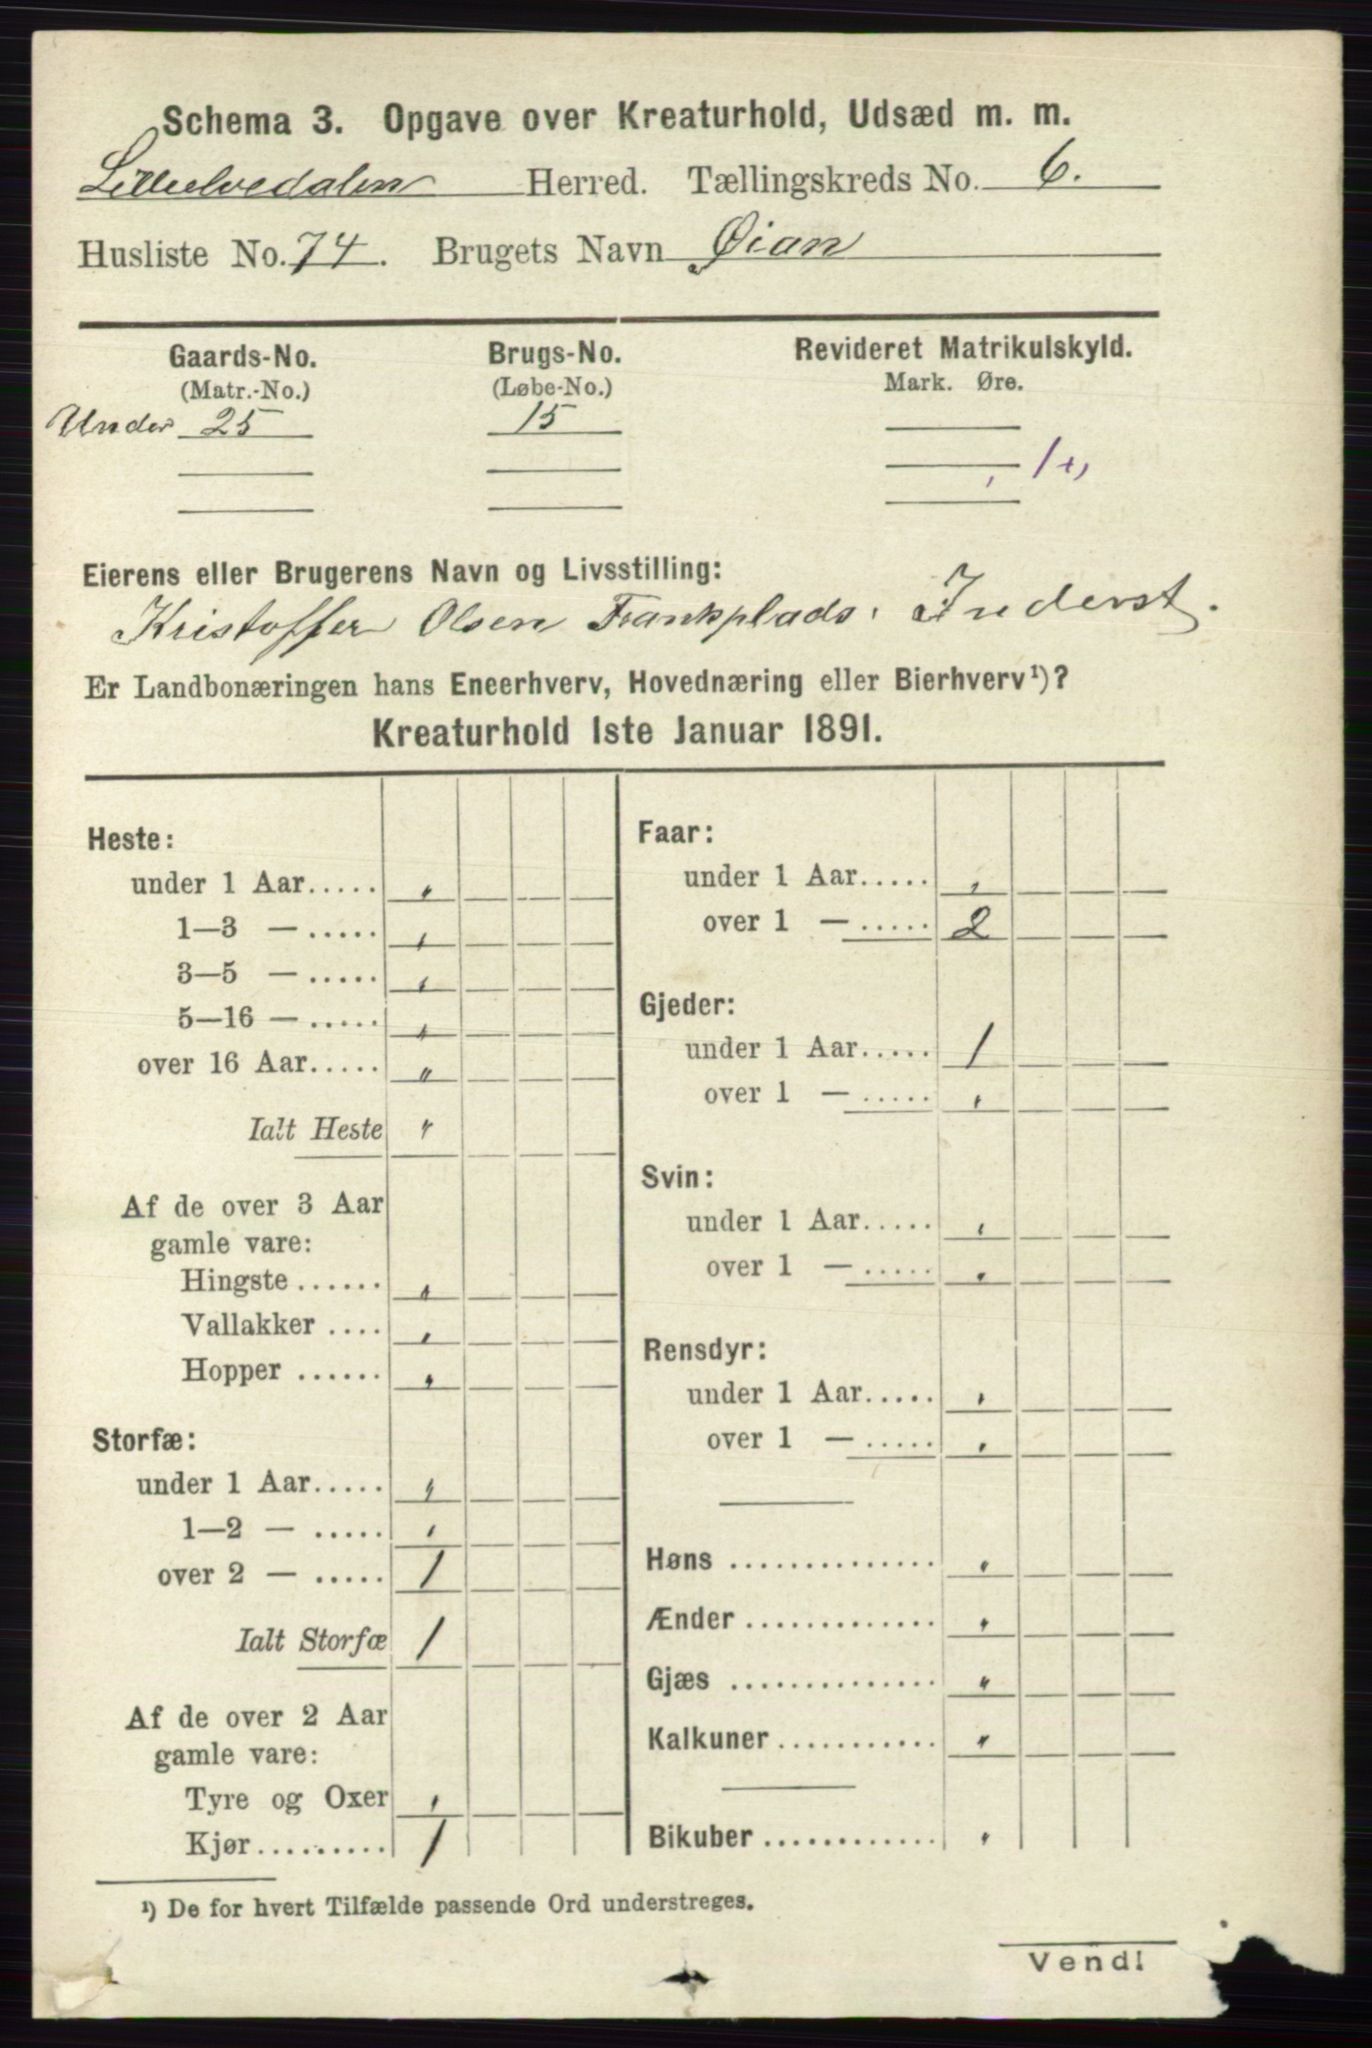 Schema 3. Opgave over Kreaturhold, Udsæd m. m.
Lilleelvedalen Herred. Tællingskreds No. 6.
Husliste No. 74. Brugets Navn Øian
Gaards-No. Brugs-No. Revideret Matrikulskyld.
(Matr.-No.) (Løbe-No.) Mark. Øre.
Under 25 15
Eierens eller Brugerens Navn og Livsstilling:
Kristoffer Olsen Frankplads. Inderst.
Er Landbonæringen hans Eneerhverv, Hovednæring eller Bierhverv¹)?
Kreaturhold 1ste Januar 1891.
Heste:
under 1 Aar..... "
1—3 — ..... "
3—5 — ..... "
5—16 — ..... "
over 16 Aar..... "
Ialt Heste "
Af de over 3 Aar
gamle vare:
Hingste ...... "
Vallakker .... "
Hopper ...... "
Storfæ:
under 1 Aar..... "
1—2 — ..... "
over 2 — ..... 1
Ialt Storfæ 1
Af de over 2 Aar
gamle vare:
Tyre og Oxer "
Kjør......... 1
Faar:
under 1 Aar..... "
over 1 — ..... 2
Gjeder:
under 1 Aar..... 1
over 1 — ..... "
Svin:
under 1 Aar..... "
over 1 — ..... "
Rensdyr:
under 1 Aar..... "
over 1 — ..... "
Høns .............. "
Ænder ............. "
Gjæs .............. "
Kalkuner ........... "
Bikuber ............ "
¹) De for hvert Tilfælde passende Ord understreges.
Vend!